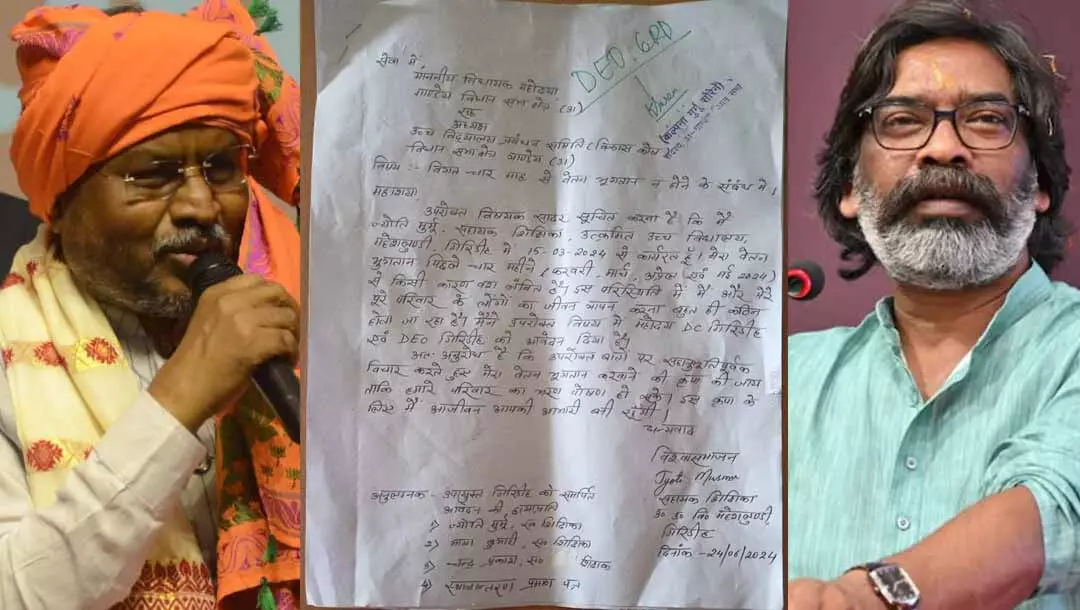 DEO, GRD
सेवा में,
माननीय विधायक महोदया
गाण्डेय विधान सभा क्षेत्र (31)
एवं
अध्यक्ष
उच्च विद्यालय प्रबंधन समिति (विकास कोष)
विधान सभा क्षेत्र गाण्डेय (31)
(कल्पना मुर्मू सोरेन)
विषय :- विगत चार माह से वेतन भुगतान न होने के संबंध में।
महाशया,
उपरोक्त विषयक सादर सूचित करना है कि मैं
ज्योति मुर्मू, सहायक शिक्षिका, उत्क्रमित उच्च विद्यालय,
महेशलुण्डी, गिरिडीह में 15-03-2024 से कार्यरत हूँ। मेरा वेतन
भुगतान पिछले चार महीने (फरवरी, मार्च, अप्रैल एवं मई 2024)
से किसी कारण वश लंबित है। इस परिस्थिति में मैं और मेरे
पूरे परिवार के लोगों का जीवन यापन करना बहुत ही कठिन
होता जा रहा है। मैंने उपरोक्त विषय में महोदय DC गिरिडीह
एवं DEO गिरिडीह को आवेदन दिया है।
अतः अनुरोध है कि उपरोक्त बातों पर सहानुभूतिपूर्वक
विचार करते हुए मेरा वेतन भुगतान करवाने की कृपा की जाय
ताकि हमारे परिवार का भरण पोषण हो सके। इस कृपा के
लिए मैं आजीवन आपकी आभारी बनी रहूँगी।
धन्यवाद
विश्वासभाजन
Jyoti Murmu
सहायक शिक्षिका
उ० उ० वि० महेशलुण्डी,
गिरिडीह
दिनांक - 24/06/2024
अनुलग्नक - उपायुक्त गिरिडीह को समर्पित
आवेदन की छायाप्रति
1) ज्योति मुर्मू, स० शिक्षिका
2) कुमारी, स० शिक्षिका
3) चन्द्र प्रकाश, स० शिक्षक
4) स्थानान्तरण प्रमाण पत्र